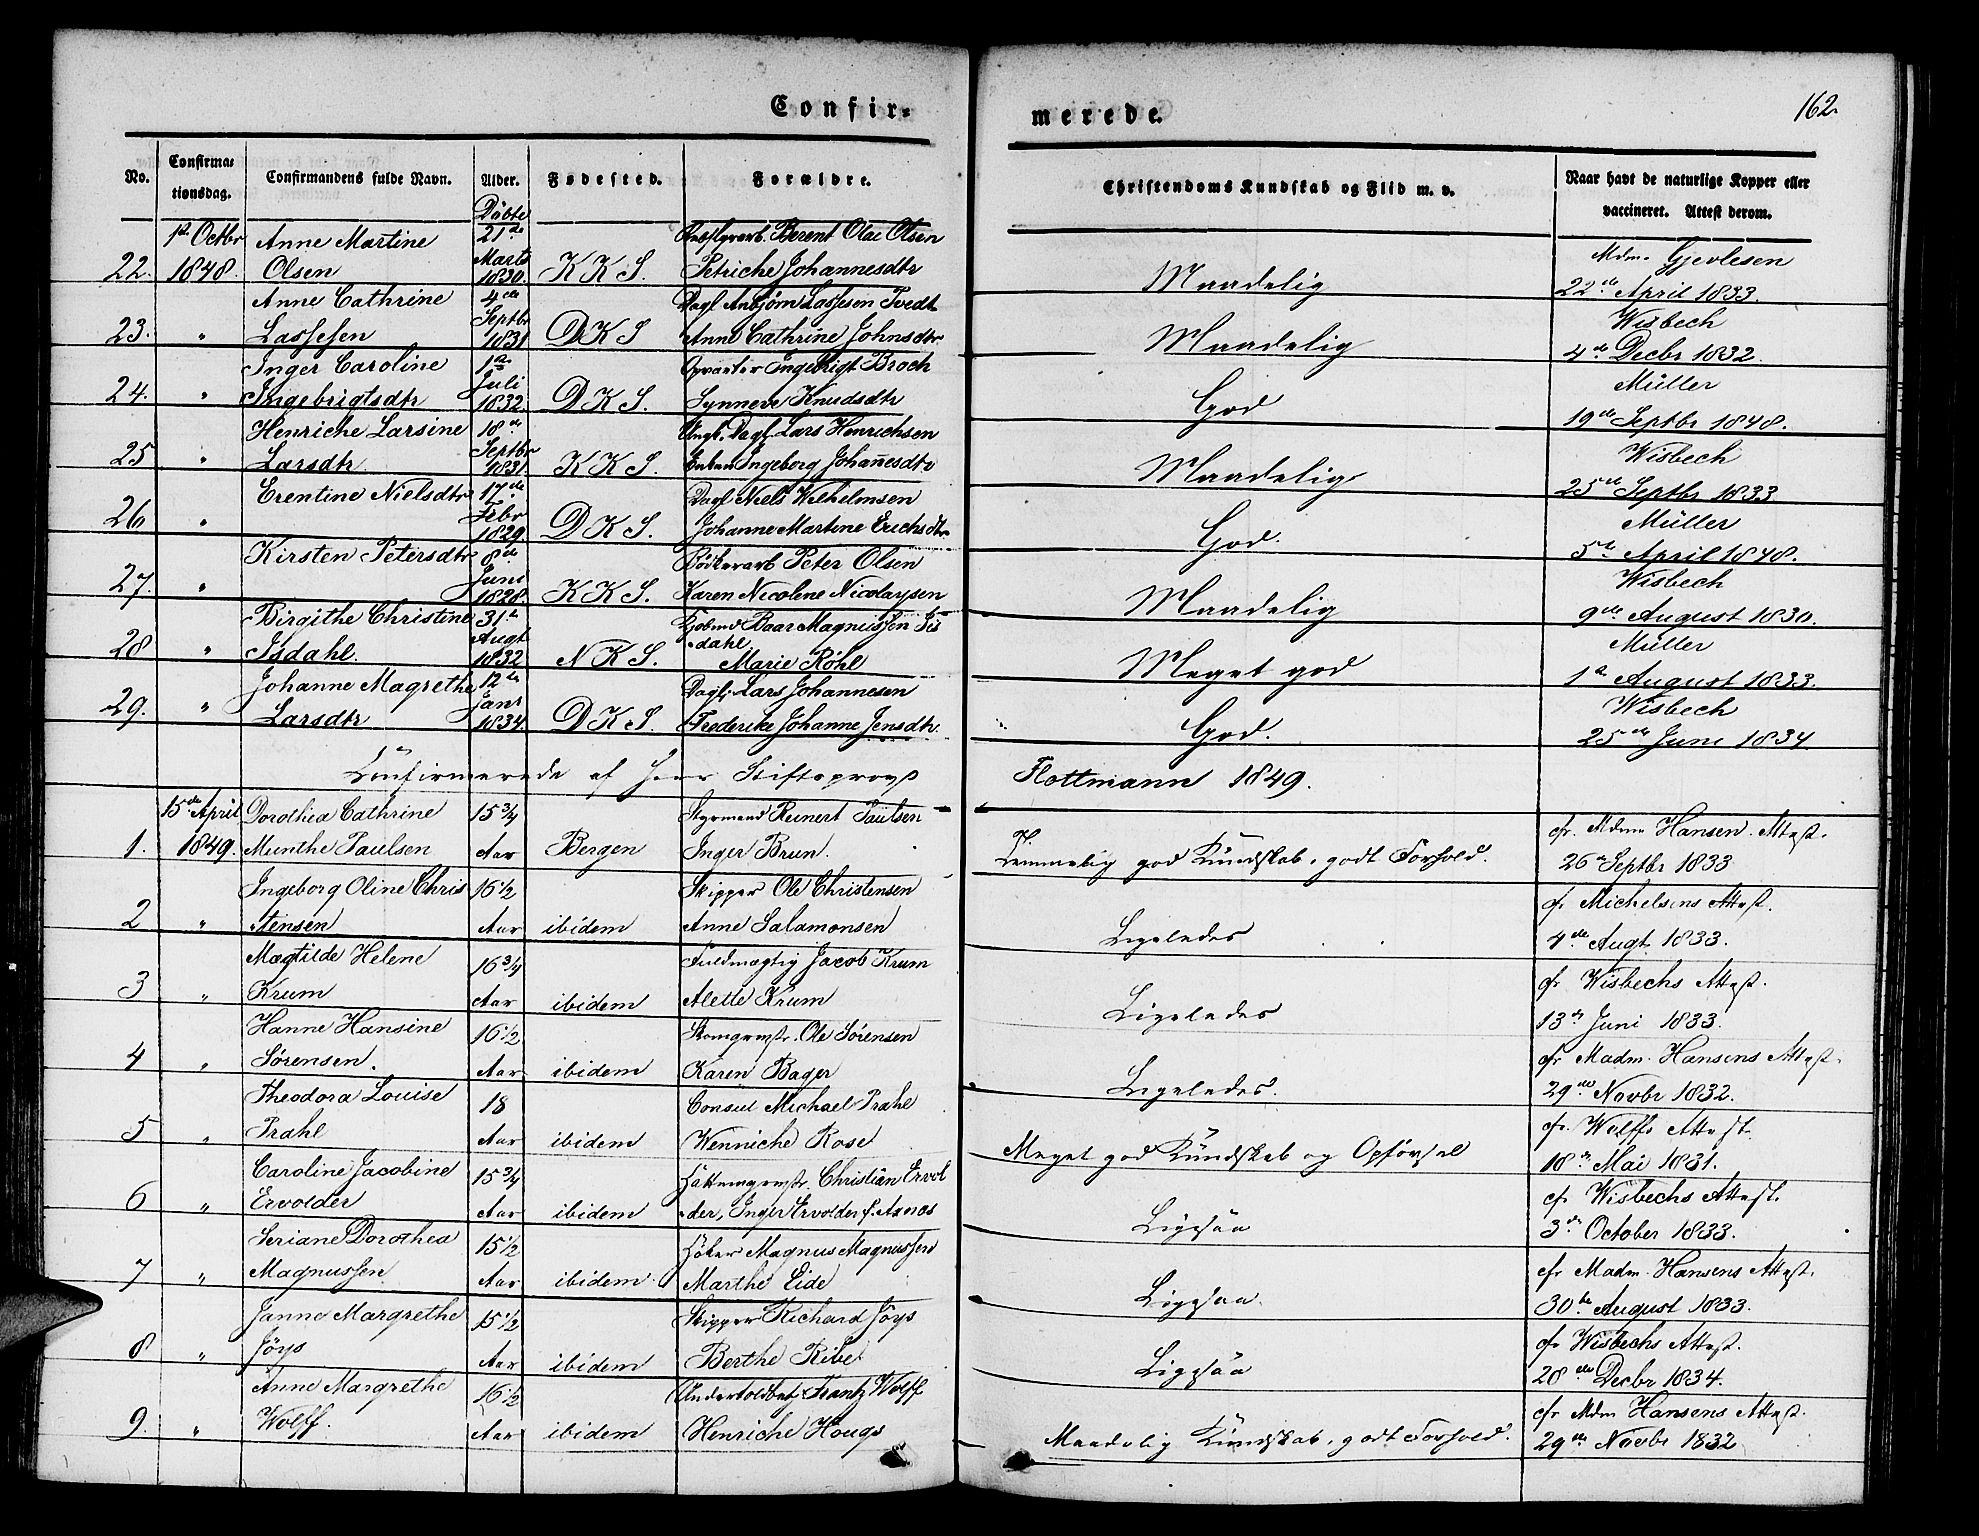 Confir-
merede.
162.
No.
Confirma-
tionsdag.
Confirmandens fulde Navn.
Alder.
Fødested.
Forældre.
Christendoms Kundskab og Flid m. v.
Naar havt de naturlige Kopper eller
vaccineret. Attest derom.
Döbte
1st Octbr Anne Martine 21de Berent Olai Olsen Mdm. Gjevlesen
22. 1848. Olsen Marts 1830. K K S. Petriche Johannesdtr Maadelig 22de April 1833.
Anne Cathrine 4de Dagl Anbjörn Lassesen Tvedt Wisbech
23. " Lassesen Septbr 1831 D K S Anne Cathrine Johnsdtr Maadelig 4de Decbr 1832.
Inger Caroline 1ste Opvarter Ingebrigt Broch Müller
24. " Ingebrigtsdtr Juli 1832. D K S. Synneve Knudsdtr God 19de Septbr 1848.
Henriche Larsine 18de Ungk. Dagl. Lars Henrichsen Wisbech
25 " Larsdtr Septbr 1831. K K S. Enken Ingeborg Johañesdtr Maadelig 25de Septbr 1833
Erentine Nielsdtr 17de Dagl Niels Wilhelmsen Müller
26 " Febr 1829 D K S. Johanne Martine Erichsdtr God. 5te April 1848.
Kirsten Petersdtr 8de Bödkerarb Peter Olsen Wisbech
27. " Juni 1828. K K S. Karen Nicolene Nicolaysen Maadelig 9de August 1830.
Birgithe Christine 31te Kjöbmd Baar Magnussen Is- Müller
28 " Isdahl. Augt 1832 N K S. dahl Marie Röhl Meget god 1ste August 1833.
Johanne Magrethe 12de Dagl. Lars Johannesen Wisbech
29. " Larsdtr Janr 1834. D K S. Frederike Johanne Jensdtr. God. 25de Juni 1834
Confirmerede af Herr Stiftsprovst Flottmann 1849.
15de April Dorothea Cathrine 15 3/4 Styrmand Reinert Paulsen cfr. Mdme Hansen. Attest.
1. 1849. Munthe Paulsen Aar Bergen Inger Brun. Temmelig god Kundskab, godt Forhold. 26de Septbr 1833
Ingeborg Oline Chris 16 1/2 Skipper Ole Christensen cfr Michelsens Attest.
2 " stensen Aar ibidem Anne Salamonsen Ligeledes 4de Augt. 1833.
Magtilde Helene 16 3/4 Fuldmægtig Jacob Krum cfr Wisbechs Attest.
3 " Krum Aar ibidem Alette Krum Ligeledes 13de Juni 1833.
Hanne Hansine 16 1/2 Skomgrmstr. Ole Sörensen cfr Madm. Hansens Attest.
4 " Sörensen. Aar ibidem Karen Bager Ligeledes. 29de Novbr 1832.
Theodora Louise 18 Consul Michael Prahl cfr. Wolffs Attest.
5 " Prahl Aar ibidem Wenniche Rose Meget god Kundskab og Opförsel 18de Mai 1831.
Caroline Jacobine 15 3/4 Christian Ervol cfr Wisbechs Attest.
6 " Ervolder Aar ibidem der, Inger Ervolder f. Aanes Ligesaa 3de October 1833.
Seriane Dorothea 15 1/2 Höker Magnus Magnussen cfr Madm. Hansens Attest.
7 " Magnussen Aar ibidem Marthe Eide Ligesaa. 30te August 1833.
Janne Margrethe 15 1/2 Skipper Richard Jöys cfr Wisbechs Attest.
8 " Jöys Aar ibidem Berthe Ribe Ligesaa 28de Decbr 1834.
Anne Margrethe 16 1/2 Undertoldbetj Frantz Wolff cfr Mdm Hansens Attest.
9. " Wolff. Aar ibidem Henriche Hougs Maadelig Kundskab, godt Forhold. 29de Novbr 1832